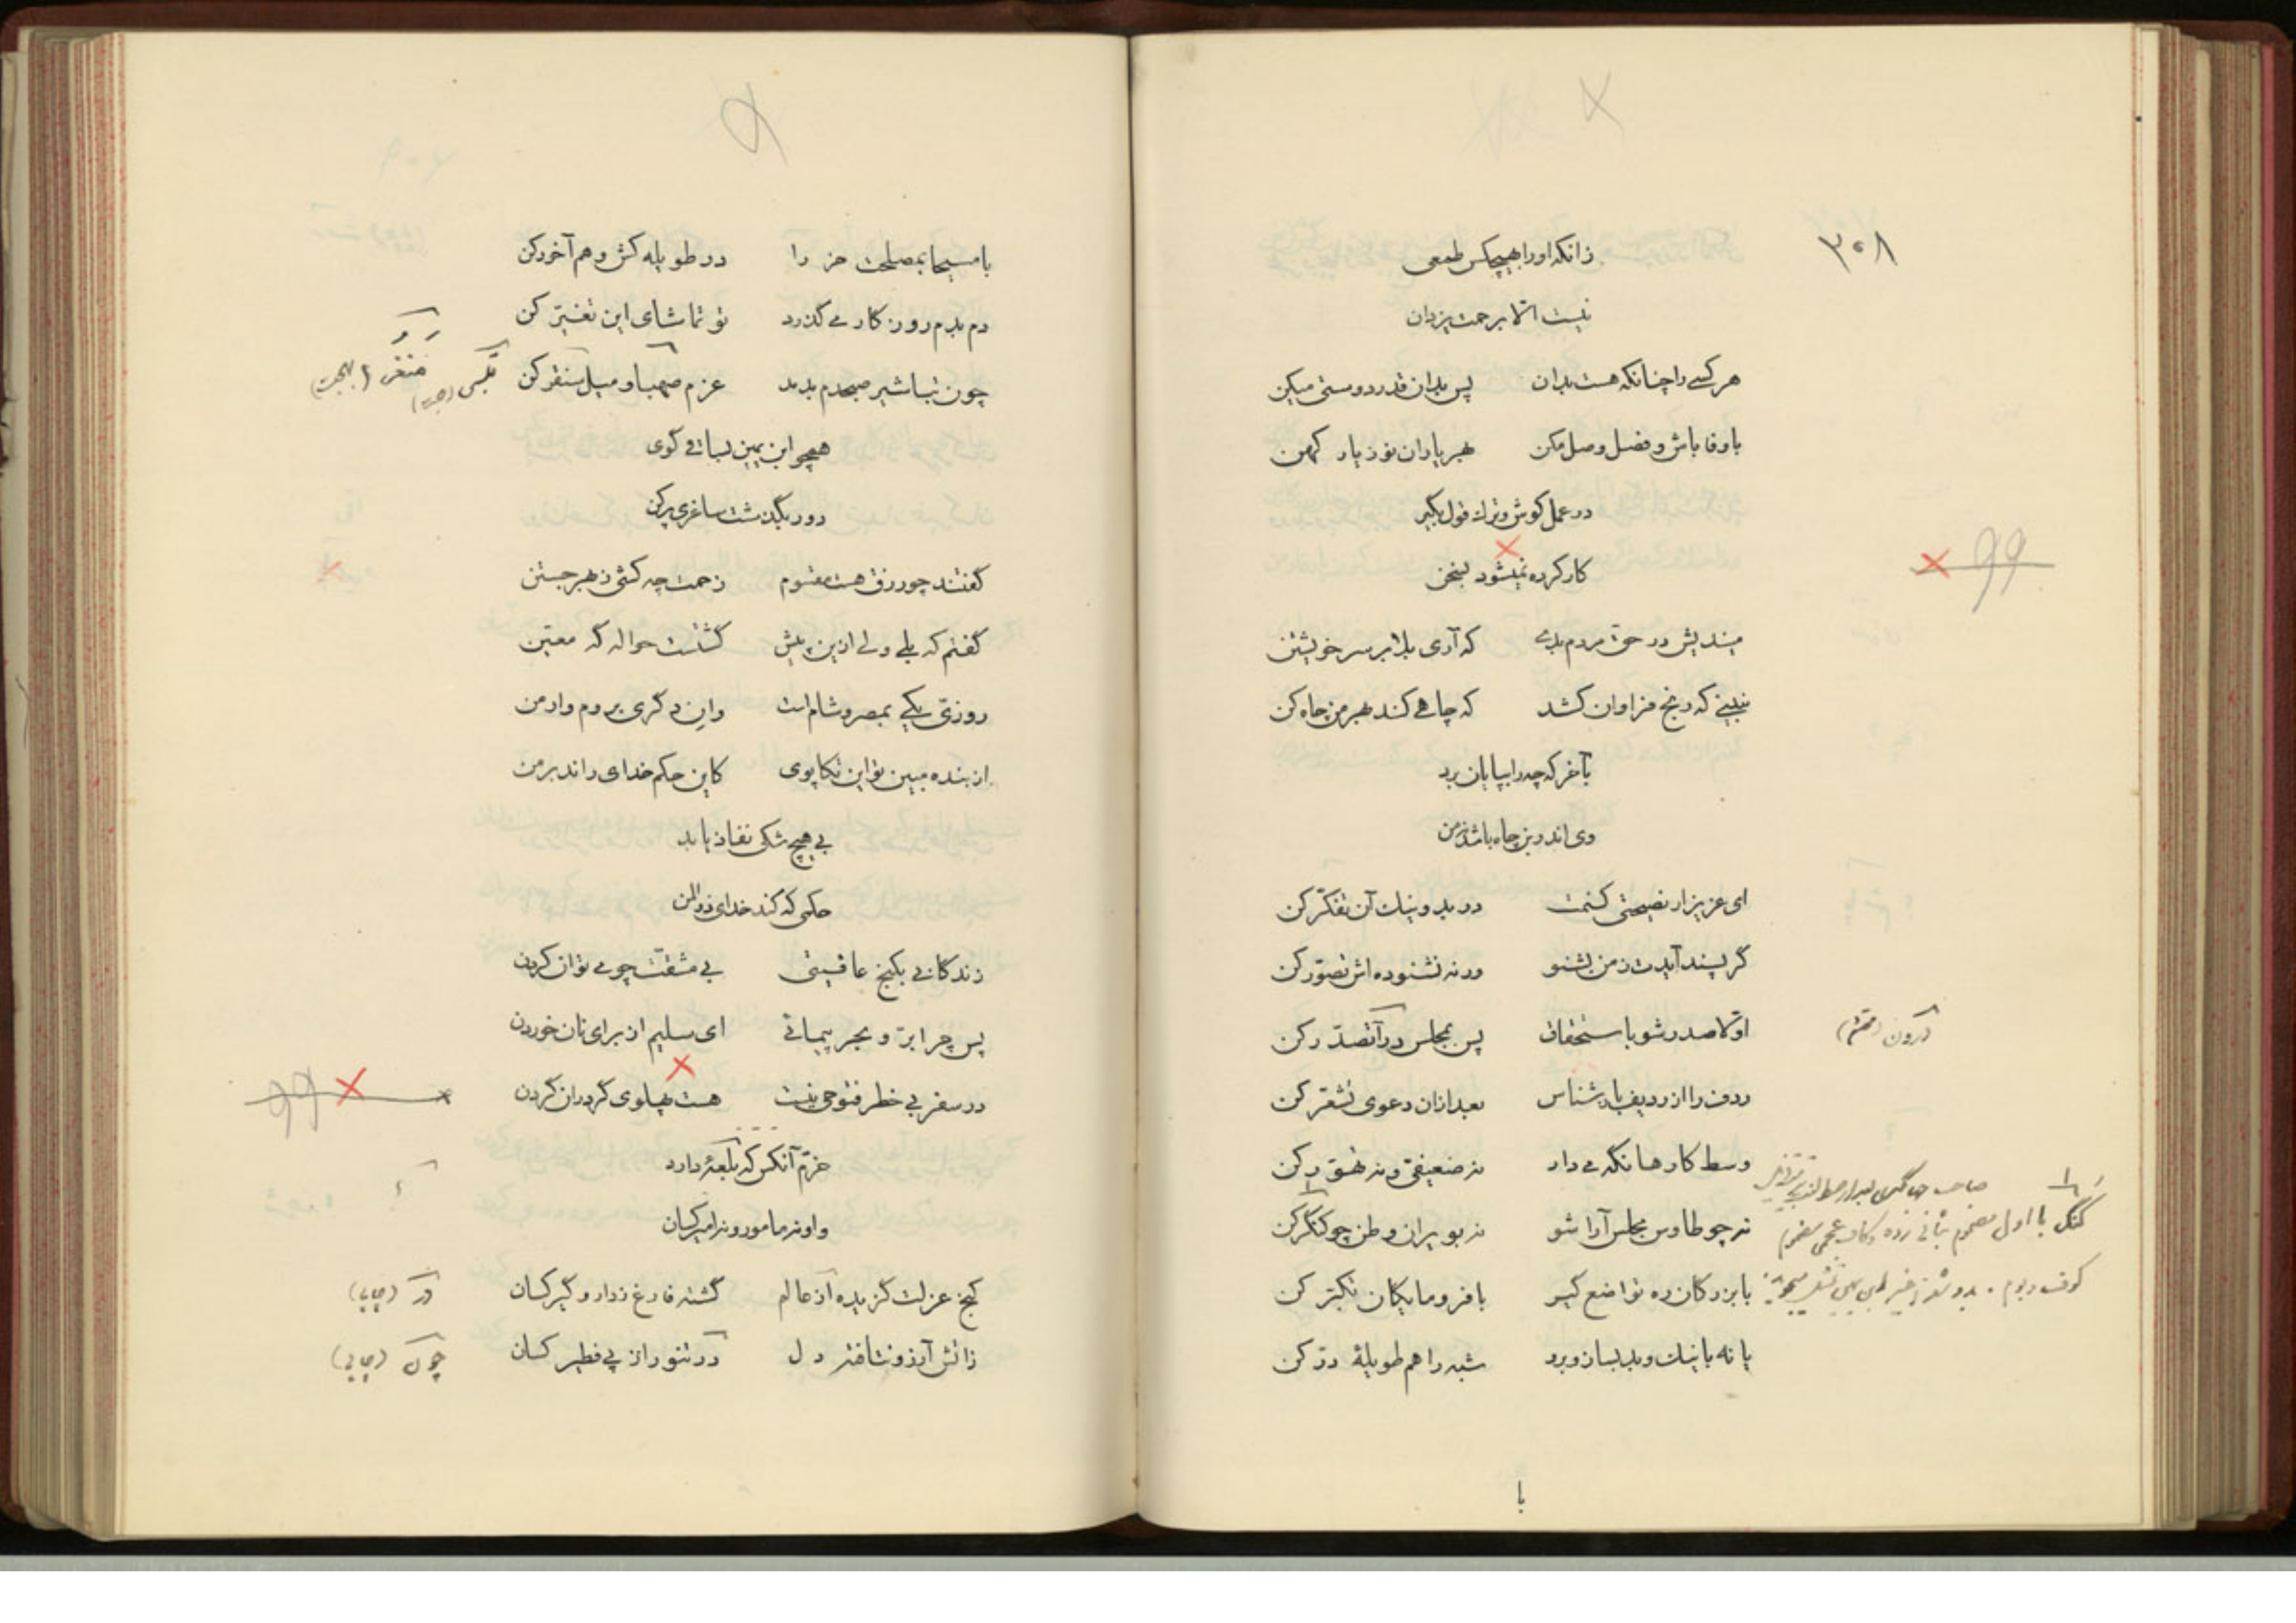 ۳۰۸
زانکه او را بهیچکس طمعی
نیست الا برحمت یزدان
هر کسی را چنانکه هست بدان پس بدان قدر دوستی میکن
با وفا باش و فصل و وصل مکن بهر یاران نو ز یار کهن
در عمل کوش و ترک قول بگیر
کار کرده نمیشود بسخن
۹۹
میندیش در حق مردم بدی که آری بلا بر سر خویشتن
نبینی که رنج فراوان کشد که چاهی کند بهر من چاه کن
بآخر که چه را بپایان برد
وی اندر بن چاه باشد نه من
ای عزیز ار نصیحتی کنمت در بد و نیک آن تفکّر کن
گر پسند آیدت ز من بشنو ور نه نشنوده اش تصوّر کن
اوّلا صدر شو باستحقاق پس بمجلس درآ تصدّر کن
درون
ردف را از ردیف باز شناس بعد ازان دعوی تشعّر کن
وسط کارها نگه می دار نه ضعیفی و نه تهوّر کن
نه چو طاوس مجلس آرا شو نه بویران وطن چو کنگر کن
کنگر با اول مضموم بثانی زده و کاف عجمی مضموم
با بزرگان ره تواضع گیر با فرومایگان تکبّر کن
یا نه با نیک و بد بسان و برد شبه را هم طویلهٔ درّ کن
با
با مسیحا بمصلحت خر را در طویله کش و هم آخور کن
دم بدم روزگار می گذرد تو تماشای این تغیّر کن
چون تباشیر صبحدم بدمد عزم صهبا و میل سنقر کن
همچو ابن یمین بساقی گوی
دور بگذشت ساغری پر کن
گفتند چو رزق هست مقسوم زحمت چه کشی ز بهر جستن
گفتم که بلی ولی ازین پیش گشتست حواله گه معیّن
روزیّ یکی بمصر و شام است وان دگری بروم و ارمن
از بنده مبین تو این تکاپوی کاین حکم خدای راند بر من
بی هیچ شکی نفاذ یابد
حکمی که کند خدای ذوالمن
زندگانی بکنج عافیتی بی مشقّت چو می توان کردن
پس چرا برّ و بحر پیمائی ای سلیم از برای نان خوردن
در سفر بی خطر فتوحی نیست هست پهلوی گرد ران گردن
۹۹
خرّم آنکس که بلغهٔ دارد
واو نه مامور و نه امیر کسان
کنج عزلت گزیده از عالم گشته فارغ ز دار و گیر کسان
در (چاپی)
زاتش آز و نتافته دل در تنور از پی فطیر کسان
چون (چاپی)